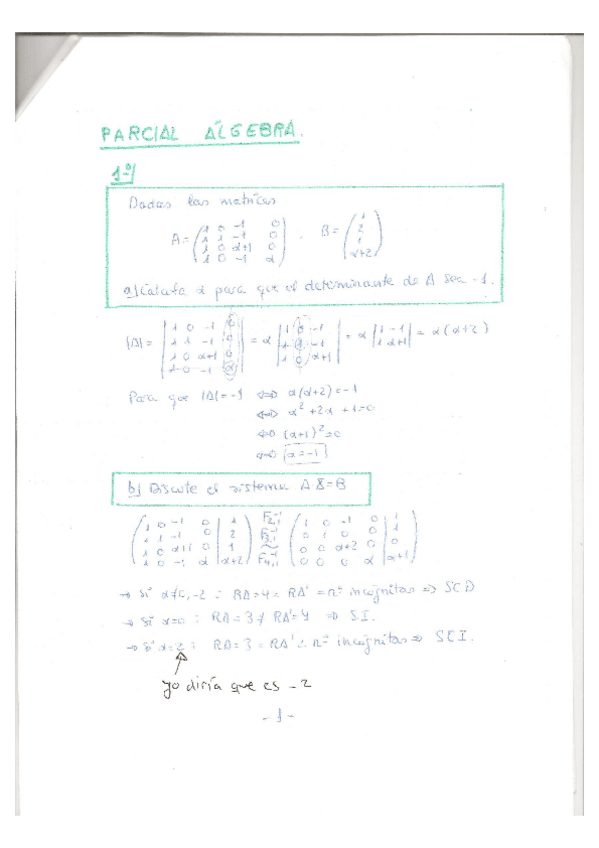 PARCIAL ÁLGEBRA.
1º/
Dadas las matrices
A = ( 1 0 -1 0 | 1 1 -1 0 | 1 0 α+1 0 | 1 0 -1 α ) . B = ( 1 | 2 | 1 | α+2 )
a) Calcula α para que el determinante de A sea -1.
|A| = | 1 0 -1 0 | 1 1 -1 0 | 1 0 α+1 0 | 1 0 -1 α | = α | 1 0 -1 | 1 1 -1 | 1 0 α+1 | = α | 1 -1 | 1 α+1 | = α(α+2)
Para que |A| = -1 ⇔ α(α+2) = -1
⇔ α² + 2α + 1 = 0
⇔ (α+1)² = 0
⇔ α = -1
b) Discute el sistema A X = B
( 1 0 -1 0 | 1 ) ( 1 0 -1 0 | 1 )
( 1 1 -1 0 | 2 ) ( 0 1 0 0 | 1 )
( 1 0 α+1 0 | 1 ) ( 0 0 α+2 0 | 0 )
( 1 0 -1 α | α+2 ) ( 0 0 0 α | α+1 )
→ Si α≠0, -2 : RA = 4 = RA' = nº incógnitas ⇒ SCD
→ Si α=0 : RA = 3 ≠ RA' = 4 ⇒ SI.
→ Si α=2 : RA = 3 = RA' nº incógnitas ⇒ SCI.
yo diría que es -2
- 1 -